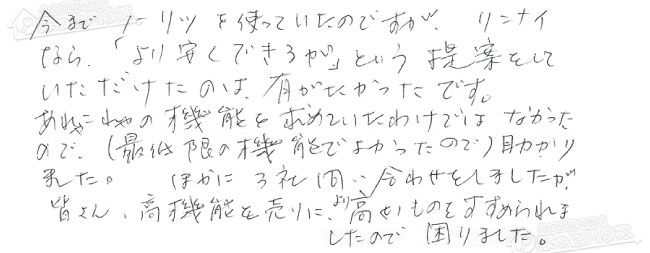 今まで ノーリツ を使っていたのですが、 リンナイ
なら、「より安くできるが」という 提案をして
いただけたのは、有がたかったです。
あれやこれやの機能を求めていたわけではなかった
ので、(最低限の機能でよかったので)助かり
ました。 ほかに3社問い合わせをしましたが
皆さん、高機能を売りに、より高いものをすすめられま
したので 困りました。